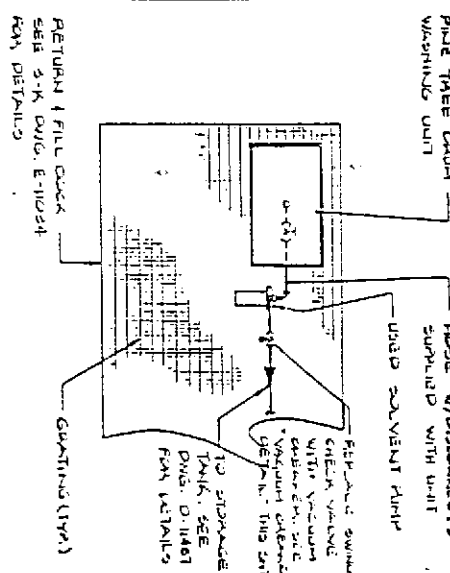 PINE TREE DRUM
WASHING UNIT
HOSE W/DISCONNECTS
SUPPLIED WITH UNIT
USED SOLVENT PUMP
REPLACE SWING
CHECK VALVE
WITH VACUUM
BREAKER. SEE
"VACUUM BREAKER
DETAIL" THIS
TO STORAGE
TANK. SEE
DWG. D-11467
FOR DETAILS
GRATING (TYP.)
RETURN & FILL DOCK
SEE S-K DWG. E-11054
FOR DETAILS